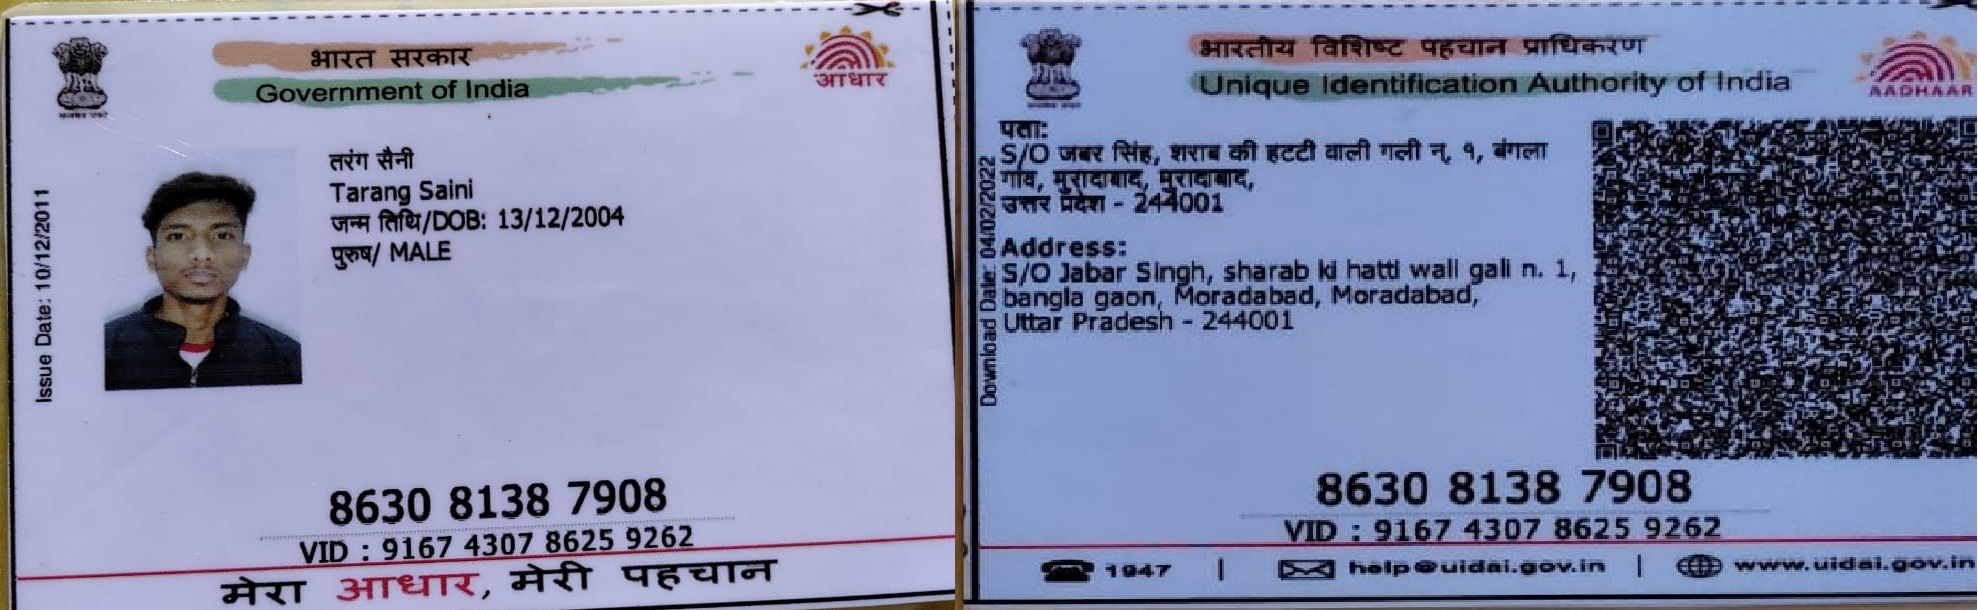 भारत सरकार
Government of India
आधार
Issue Date: 10/12/2011
तरंग सैनी
Tarang Saini
जन्म तिथि/DOB: 13/12/2004
पुरुष/ MALE
8630 8138 7908
VID : 9167 4307 8625 9262
मेरा आधार, मेरी पहचान
भारतीय विशिष्ट पहचान प्राधिकरण
Unique Identification Authority of India
AADHAAR
Download Date: 04/02/2022
पता:
S/O जबर सिंह, शराब की हटटी वाली गली न्, १, बंगला
गांव, मुरादाबाद, मुरादाबाद,
उत्तर प्रदेश - 244001
Address:
S/O Jabar Singh, sharab ki hatti wali gali n. 1,
bangla gaon, Moradabad, Moradabad,
Uttar Pradesh - 244001
8630 8138 7908
VID : 9167 4307 8625 9262
1947 | help@uidai.gov.in | www.uidai.gov.in